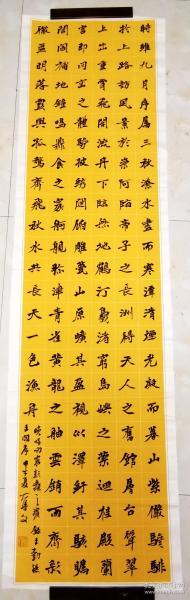 時維九月序屬三秋潦水盡而寒潭清煙光凝而暮山紫儼驂騑
於上路訪風景於崇阿臨帝子之長洲得天人之舊館層台聳翠
上出重霄飛閣流丹下臨無地鶴汀鳧渚窮島嶼之縈迴桂殿蘭
宮即岡巒之體勢披繡闥俯雕甍山原曠其盈視川澤紆其駭矚
閭閻撲地鐘鳴鼎食之家舸艦彌津青雀黃龍之舳雲銷雨霽彩
徹區明落霞與孤鶩齊飛秋水共長天一色漁舟
唱晚響窮彭蠡之濱錄王勃滕
王閣序甲午夏